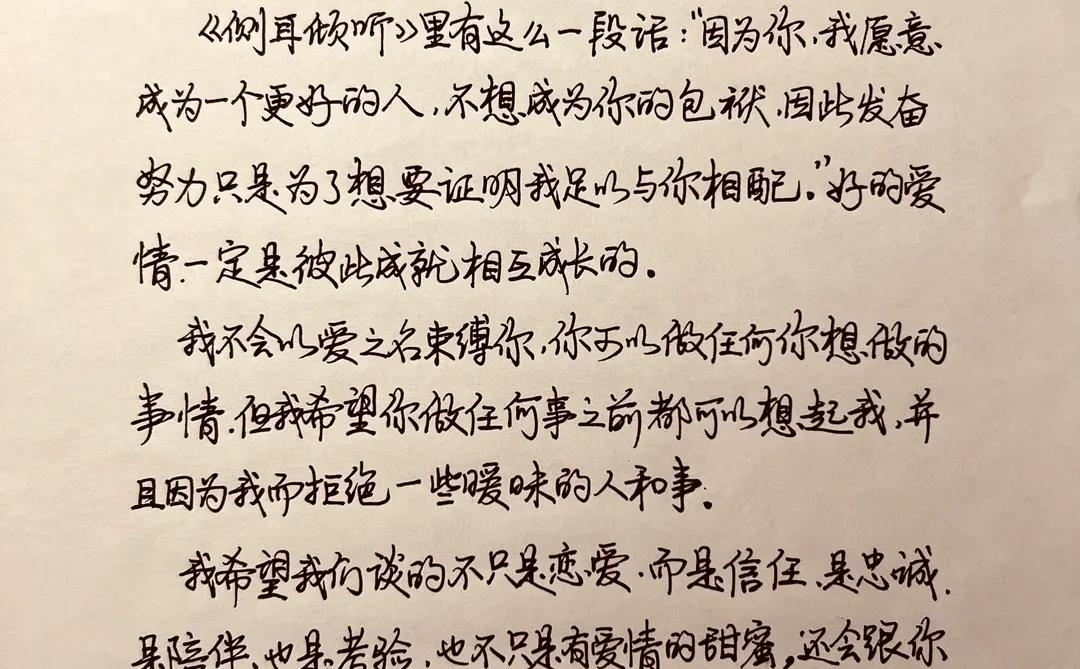 《侧耳倾听》里有这么一段话:“因为你,我愿意
成为一个更好的人,不想成为你的包袱,因此发奋
努力只是为了想要证明我足以与你相配。”好的爱
情.一定是彼此成就相互成长的。
我不会以爱之名束缚你,你可以做任何你想做的
事情.但我希望你做任何事之前都可以想起我,并
且因为我而拒绝一些暧昧的人和事.
我希望我们谈的不只是恋爱.而是信任.是忠诚.
是陪伴.也是考验.也不只是有爱情的甜蜜,还会跟你